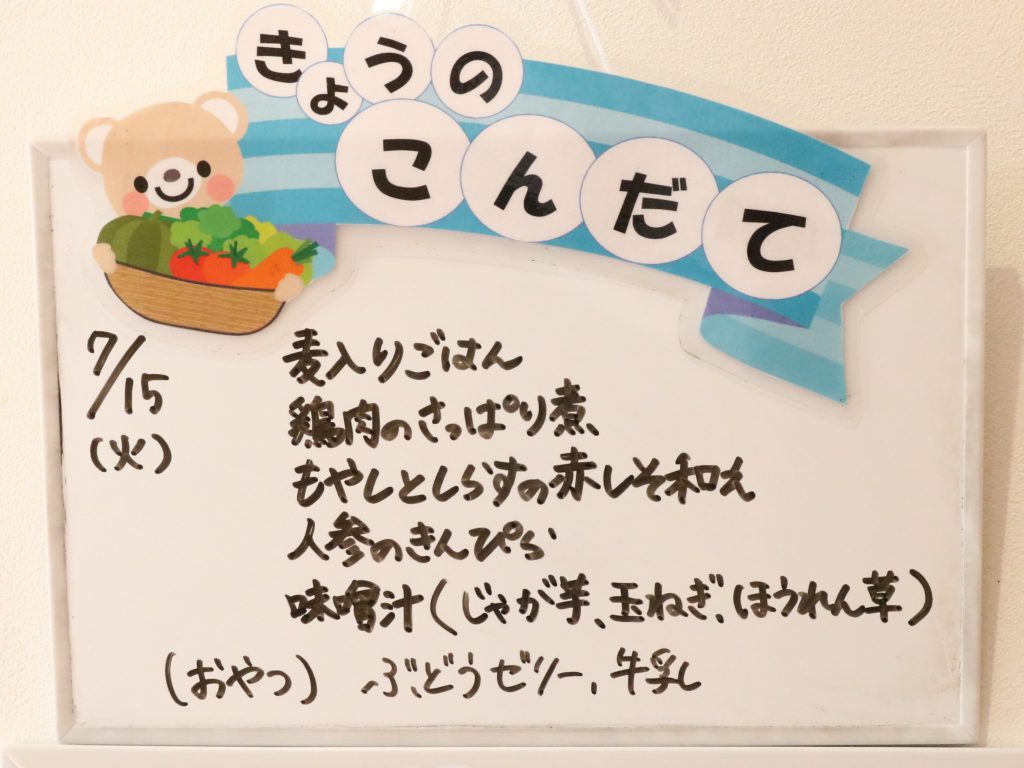 きょうの
こんだて
7/15
(火)
麦入りごはん
鶏肉のさっぱり煮
もやしとしらすの赤しそ和え
人参のきんぴら
味噌汁(じゃが芋、玉ねぎ、ほうれん草)
(おやつ) ぶどうゼリー、牛乳